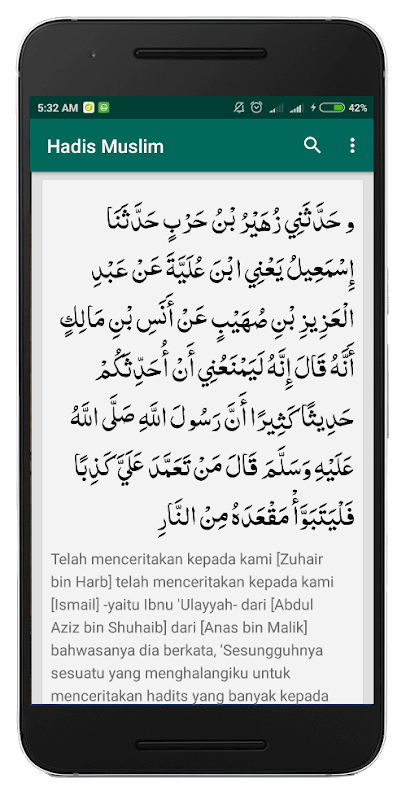 5:32 AM
42%
Hadis Muslim
و حَدَّثَنِي زُهَيْرُ بْنُ حَرْبٍ حَدَّثَنَا
إِسْمَعِيلُ يَعْنِي ابْنَ عُلَيَّةَ عَنْ عَبْدِ
الْعَزِيزِ بْنِ صُهَيْبٍ عَنْ أَنَسِ بْنِ مَالِكٍ
أَنَّهُ قَالَ إِنَّهُ لَيَمْنَعُنِي أَنْ أُحَدِّثَكُمْ
حَدِيثًا كَثِيرًا أَنَّ رَسُولَ اللَّهِ صَلَّى اللَّهُ
عَلَيْهِ وَسَلَّمَ قَالَ مَنْ تَعَمَّدَ عَلَيَّ كَذِبًا
فَلْيَتَبَوَّأْ مَقْعَدَهُ مِنْ النَّارِ
Telah menceritakan kepada kami [Zuhair
bin Harb] telah menceritakan kepada kami
[Ismail] -yaitu Ibnu 'Ulayyah- dari [Abdul
Aziz bin Shuhaib] dari [Anas bin Malik]
bahwasanya dia berkata, 'Sesungguhnya
sesuatu yang menghalangiku untuk
menceritakan hadits yang banyak kepada